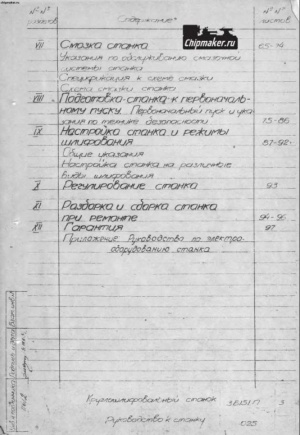 Chipmaker.ru
№ № Содержание № №
листов
VII Смазка станка 65-74
Указания по обслуживанию смазочной
системы станка
Спецификация к схеме смазки
Схема смазки станка
VIII Подготовка станка к первоначаль-
ному пуску. Первоначальный пуск и ука-
зания по технике безопасности 75-86
IX Настройка станка и режимы
шлифования 87-92
Общие указания
Настройка станка на различные
виды шлифования
X Регулирование станка 93
XI Разборка и сборка станка
при ремонте 94-96
XII Гарантия 97
Приложение Руководство по электро-
оборудованию станка
Круглошлифовальный станок 3Б151П 3
Руководство к станку